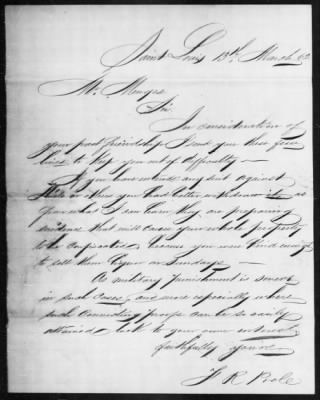 Saint Louis 13th March 62
Mr. Menges
Sir
In consideration of
your past friendship I send you these few
lines to keep you out of difficulty —
If you have entered any suit against
or others you had better withdraw it as
from what I can learn they are preparing
evidence that will cause your whole property
to be confiscated, because you were kind enough
to sell them liquor on Sundays —
As military Punishment is severe
in such cases, and more especially where
such convincing proofs can be so easily
attained, look to your own interest
faithfully yours
R Poole